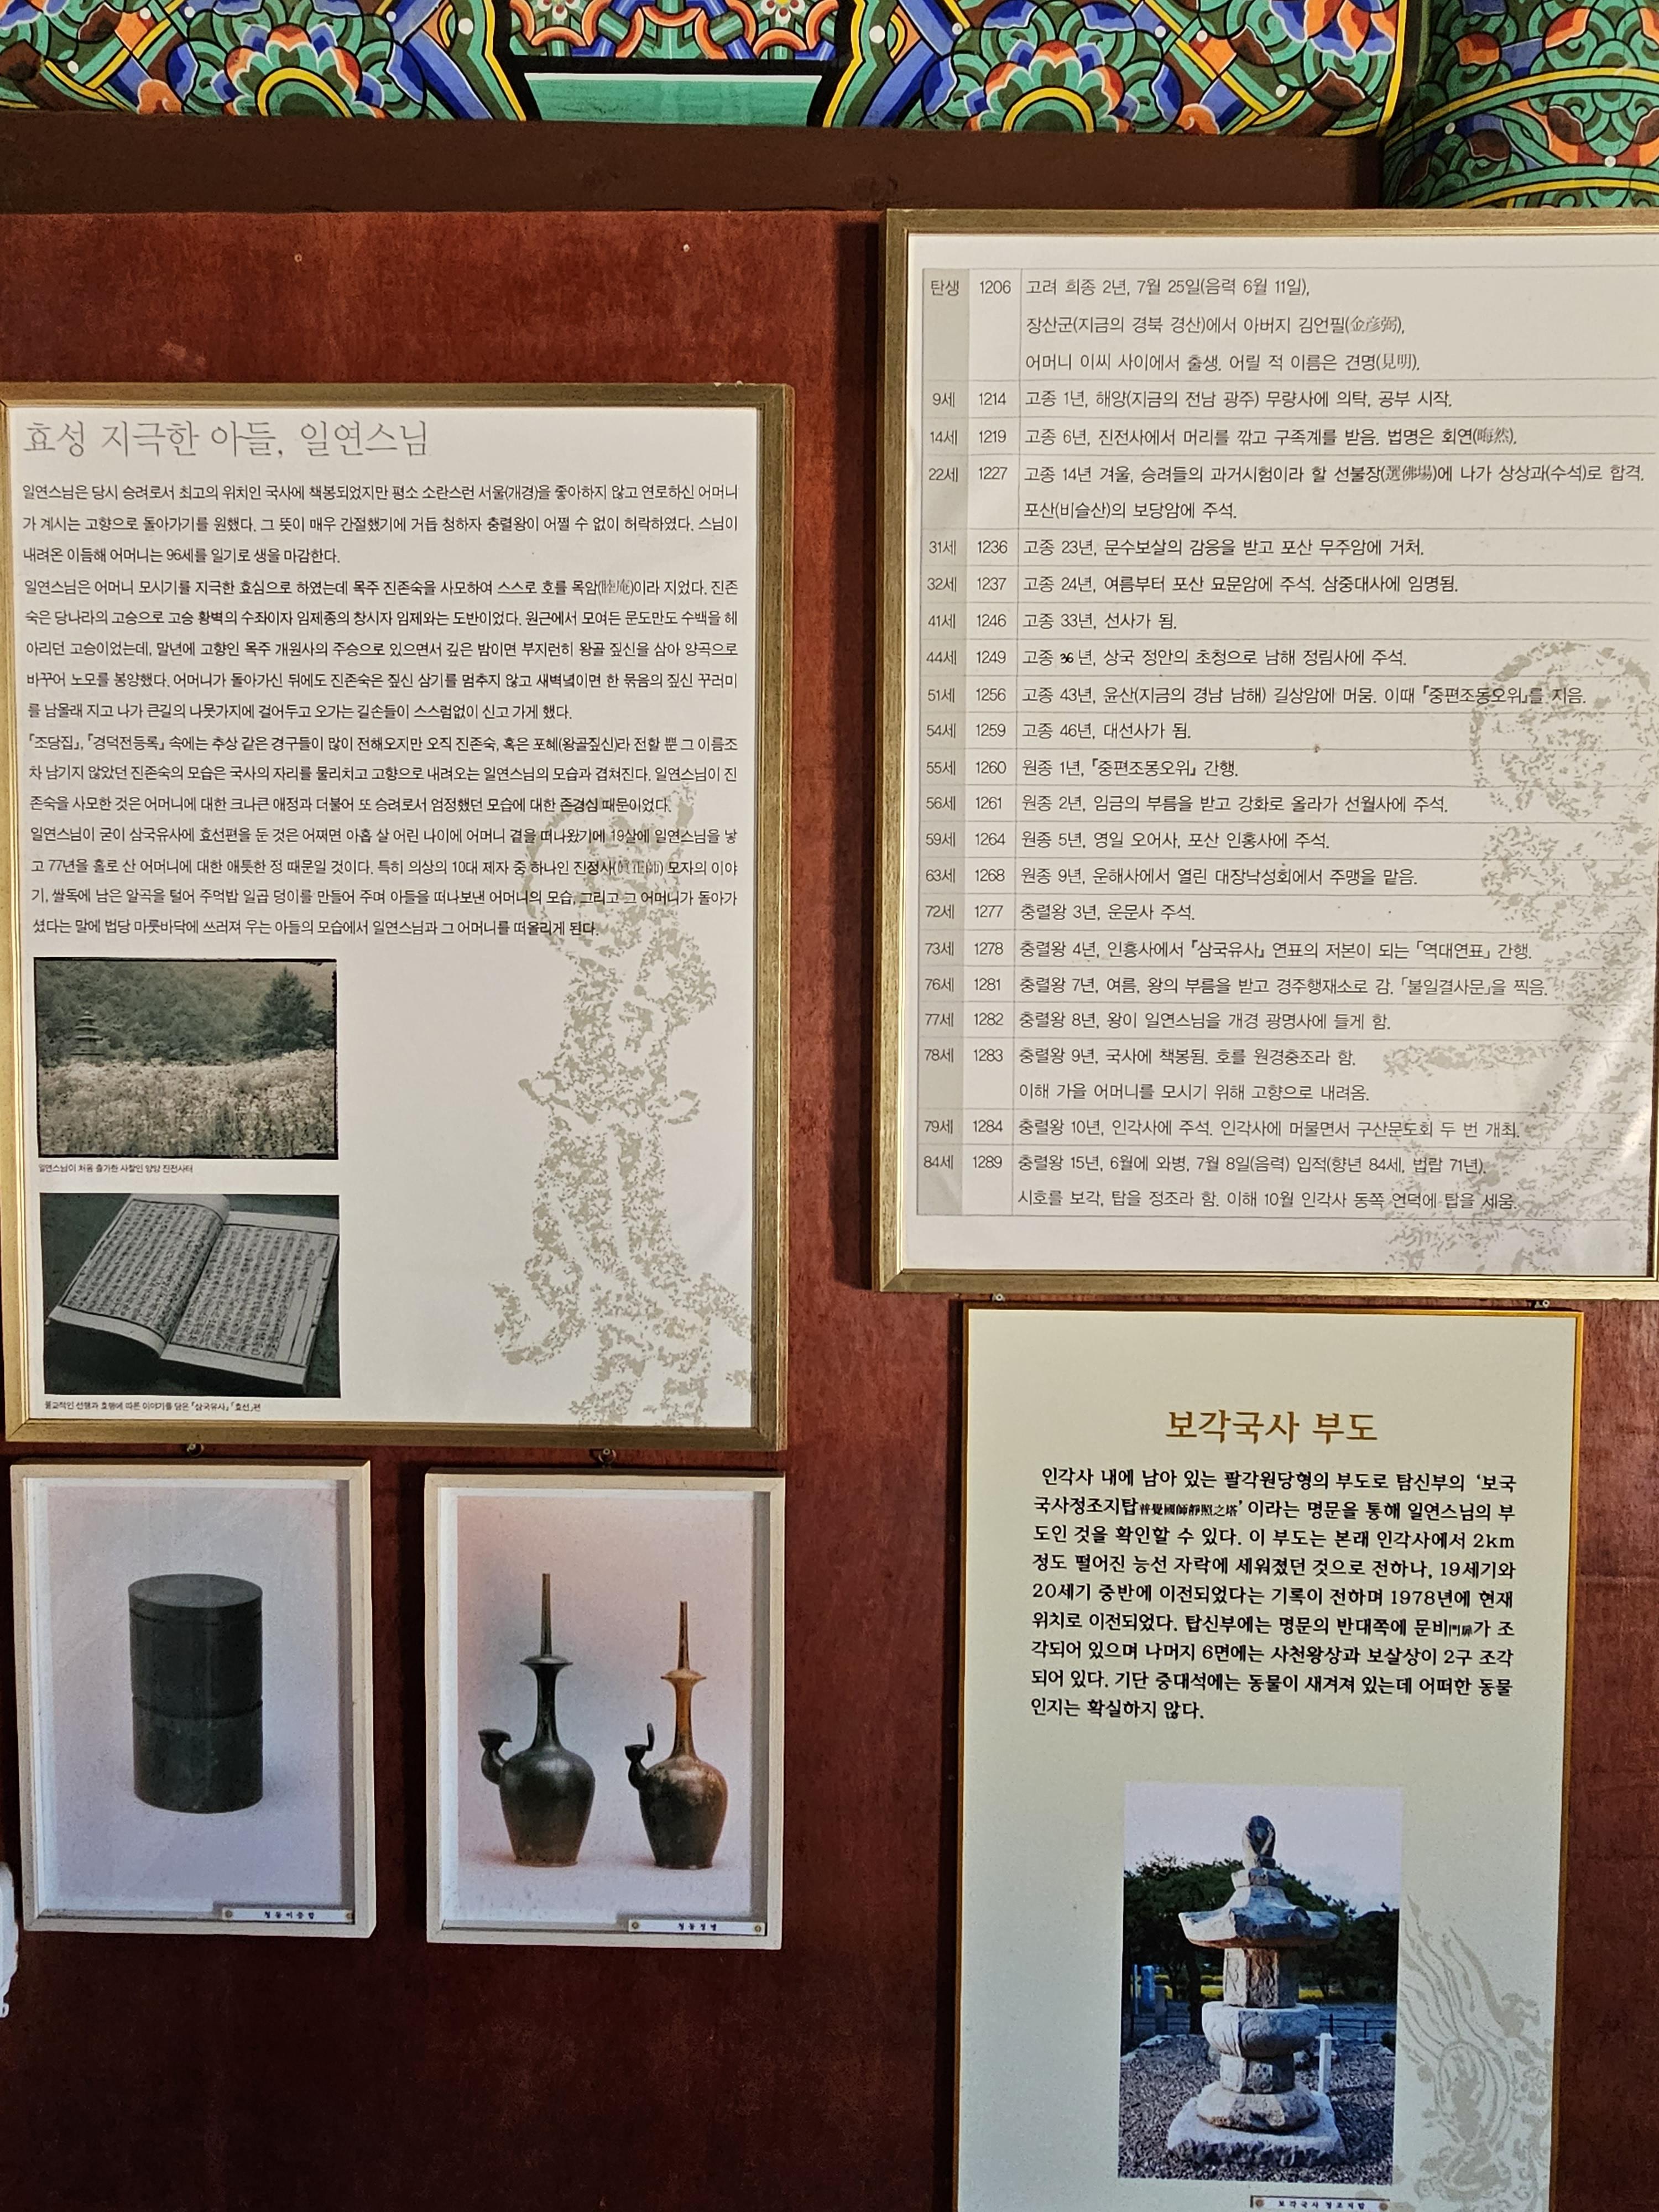 효성 지극한 아들, 일연스님
일연스님은 당시 승려로서 최고의 위치인 국사에 책봉되었지만 평소 소란스런 서울(개경)을 좋아하지 않고 연로하신 어머니
가 계시는 고향으로 돌아가기를 원했다. 그 뜻이 매우 간절했기에 거듭 청하자 충렬왕이 어쩔 수 없이 허락하였다. 스님이
내려온 이듬해 어머니는 96세를 일기로 생을 마감한다.
일연스님은 어머니 모시기를 지극한 효심으로 하였는데 목주 진존숙을 사모하여 스스로 호를 목암(睦庵)이라 지었다. 진존
숙은 당나라의 고승으로 고승 황벽의 수좌이자 임제종의 창시자 임제와는 도반이었다. 원근에서 모여든 문도만도 수백을 헤
아리던 고승이었는데, 말년에 고향인 목주 개원사의 주승으로 있으면서 깊은 밤이면 부지런히 왕골 짚신을 삼아 양곡으로
바꾸어 노모를 봉양했다. 어머니가 돌아가신 뒤에도 진존숙은 짚신 삼기를 멈추지 않고 새벽녘이면 한 묶음의 짚신 꾸러미
를 남몰래 지고 나가 큰길의 나뭇가지에 걸어두고 오가는 길손들이 스스럼없이 신고 가게 했다.
『조당집』, 『경덕전등록』 속에는 추상 같은 경구들이 많이 전해오지만 오직 진존숙, 혹은 포혜(왕골짚신)라 전할 뿐 그 이름조
차 남기지 않았던 진존숙의 모습은 국사의 자리를 물리치고 고향으로 내려오는 일연스님의 모습과 겹쳐진다. 일연스님이 진
존숙을 사모한 것은 어머니에 대한 크나큰 애정과 더불어 또 승려로서 엄정했던 모습에 대한 존경심 때문이었다.
일연스님이 굳이 삼국유사에 효선편을 둔 것은 어쩌면 아홉 살 어린 나이에 어머니 곁을 떠나왔기에 19살에 일연스님을 낳
고 77년을 홀로 산 어머니에 대한 애틋한 정 때문일 것이다. 특히 의상의 10대 제자 중 하나인 진정사(眞正師) 모자의 이야
기, 쌀독에 남은 알곡을 털어 주먹밥 일곱 덩이를 만들어 주며 아들을 떠나보낸 어머니의 모습, 그리고 그 어머니가 돌아가
셨다는 말에 법당 마룻바닥에 쓰러져 우는 아들의 모습에서 일연스님과 그 어머니를 떠올리게 된다.
일연스님이 처음 출가한 사찰인 양양 진전사터
불교적인 선행과 효행에 따른 이야기를 담은 『삼국유사』 「효선」편
청동이중합
청동정병
탄생 1206 고려 희종 2년, 7월 25일(음력 6월 11일),
장산군(지금의 경북 경산)에서 아버지 김언필(金彦弼),
어머니 이씨 사이에서 출생. 어릴 적 이름은 견명(見明).
9세 1214 고종 1년, 해양(지금의 전남 광주) 무량사에 의탁, 공부 시작.
14세 1219 고종 6년, 진전사에서 머리를 깎고 구족계를 받음. 법명은 회연(晦然).
22세 1227 고종 14년 겨울, 승려들의 과거시험이라 할 선불장(選佛場)에 나가 상상과(수석)로 합격.
포산(비슬산)의 보당암에 주석.
31세 1236 고종 23년, 문수보살의 감응을 받고 포산 무주암에 거처.
32세 1237 고종 24년, 여름부터 포산 묘문암에 주석. 삼중대사에 임명됨.
41세 1246 고종 33년, 선사가 됨.
44세 1249 고종 36년, 상국 정안의 초청으로 남해 정림사에 주석.
51세 1256 고종 43년, 윤산(지금의 경남 남해) 길상암에 머뭄. 이때 『중편조동오위』를 지음.
54세 1259 고종 46년, 대선사가 됨.
55세 1260 원종 1년, 『중편조동오위』 간행.
56세 1261 원종 2년, 임금의 부름을 받고 강화로 올라가 선월사에 주석.
59세 1264 원종 5년, 영일 오어사, 포산 인홍사에 주석.
63세 1268 원종 9년, 운해사에서 열린 대장낙성회에서 주맹을 맡음.
72세 1277 충렬왕 3년, 운문사 주석.
73세 1278 충렬왕 4년, 인흥사에서 『삼국유사』 연표의 저본이 되는 「역대연표」 간행.
76세 1281 충렬왕 7년, 여름, 왕의 부름을 받고 경주행재소로 감. 「불일결사문」을 찍음.
77세 1282 충렬왕 8년, 왕이 일연스님을 개경 광명사에 들게 함.
78세 1283 충렬왕 9년, 국사에 책봉됨. 호를 원경충조라 함.
이해 가을 어머니를 모시기 위해 고향으로 내려옴.
79세 1284 충렬왕 10년, 인각사에 주석. 인각사에 머물면서 구산문도회 두 번 개최.
84세 1289 충렬왕 15년, 6월에 와병, 7월 8일(음력) 입적(향년 84세, 법랍 71년).
시호를 보각, 탑을 정조라 함. 이해 10월 인각사 동쪽 언덕에 탑을 세움.
보각국사 부도
인각사 내에 남아 있는 팔각원당형의 부도로 탑신부의 ‘보국
국사정조지탑普覺國師靜照之塔’이라는 명문을 통해 일연스님의 부
도인 것을 확인할 수 있다. 이 부도는 본래 인각사에서 2km
정도 떨어진 능선 자락에 세워졌던 것으로 전하나, 19세기와
20세기 중반에 이전되었다는 기록이 전하며 1978년에 현재
위치로 이전되었다. 탑신부에는 명문의 반대쪽에 문비門扉가 조
각되어 있으며 나머지 6면에는 사천왕상과 보살상이 2구 조각
되어 있다. 기단 중대석에는 동물이 새겨져 있는데 어떠한 동물
인지는 확실하지 않다.
보각국사정조지탑